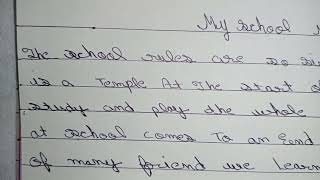 My school
The school rules are so
is a Temple At The start of
study and play the whole
at school comes To an End
of many foriend we learn